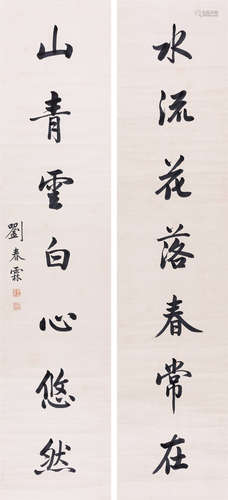 水流花落春常在
山青雲白心悠然
劉春霖